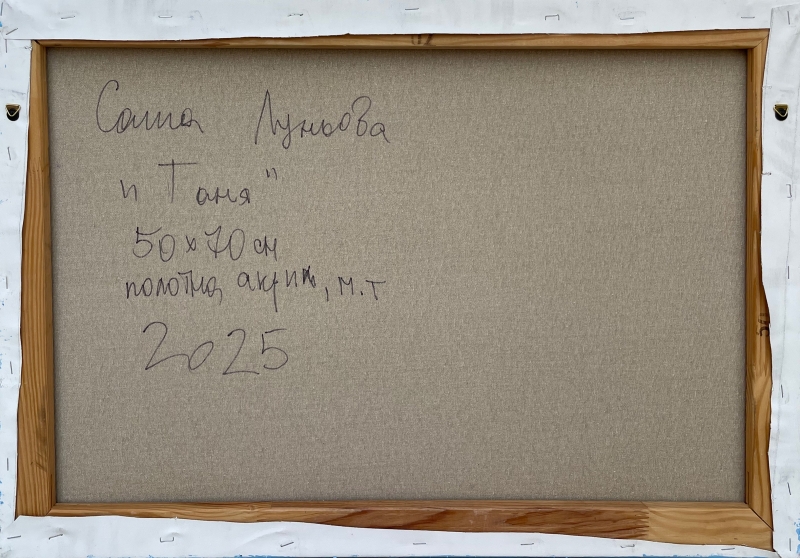 Саша Луньова
„Таня"
50х70 см
полотно, акрил, м.т
2025